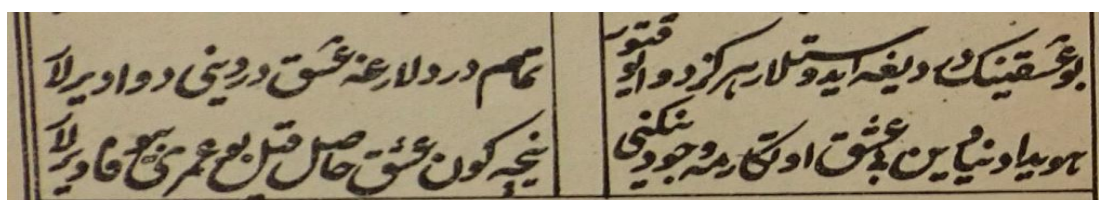 بو عشقینک دردیغه ای دوستلار هرگز دوا یوقتور
تمام دردلارغه عشق دردینی دوا دیرلار
هویدا عشق اوتیکا وجودینکنی
نیچه کون عشق حاصل قیل بو عمرنی بیوفا دیرلار